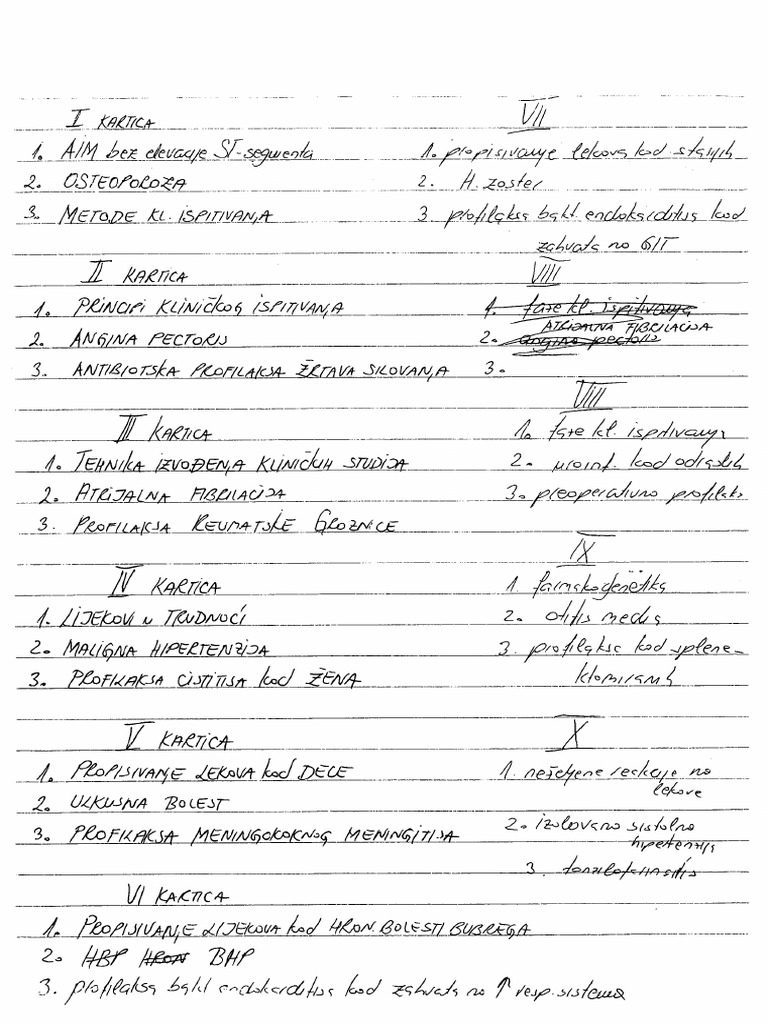 I KARTICA
1. AIM bez elevacije ST-segmenta
2. OSTEOPOROZA
3. METODE KL. ISPITIVANJA
II KARTICA
1. PRINCIPI KLINIČKOG ISPITIVANJA
2. ANGINA PECTORIS
3. ANTIBIOTSKA PROFILAKSA ŽRTAVA SILOVANJA
III KARTICA
1. TEHNIKA IZVOĐENJA KLINIČKIH STUDIJA
2. ATRIJALNA FIBRILACIJA
3. PROFILAKSA REUMATSKE GROZNICE
IV KARTICA
1. LIJEKOVI u TRUDNOĆI
2. MALIGNA HIPERTENZIJA
3. PROFILAKSA CISTITISA kod ŽENA
V KARTICA
1. PROPISIVANJE LEKOVA kod DECE
2. ULKUSNA BOLEST
3. PROFILAKSA MENINGOKOKNOG MENINGITISA
VI KARTICA
1. PROPISIVANJE LIJEKOVA kod HRON. BOLESTI BUBREGA
2. HBP HRON BHP
3. profilaksa bakt endokarditisa kod zahvata na ↑ resp. sistema
VII
1. propisivanje lekova kod starijih
2. H. zoster
3. profilaksa bakt. endokarditisa kod
zahvata na GIT
VIII
1. faze kl. ispitivanja
ATRIJALNA FIBRILACIJA
2. angina pectoris
3.
VIII
1. faze kl. ispitivanja
2. uroinf. kod odraslih
3. preoperativna profilaks
IX
1. farmakogenetika
2. otitis media
3. profilaksa kod splene-
ktomiranih
X
1. neželjene reakcije na
lekove
2. izolovana sistolna
hipertenzija
3. tonzilofaringitis